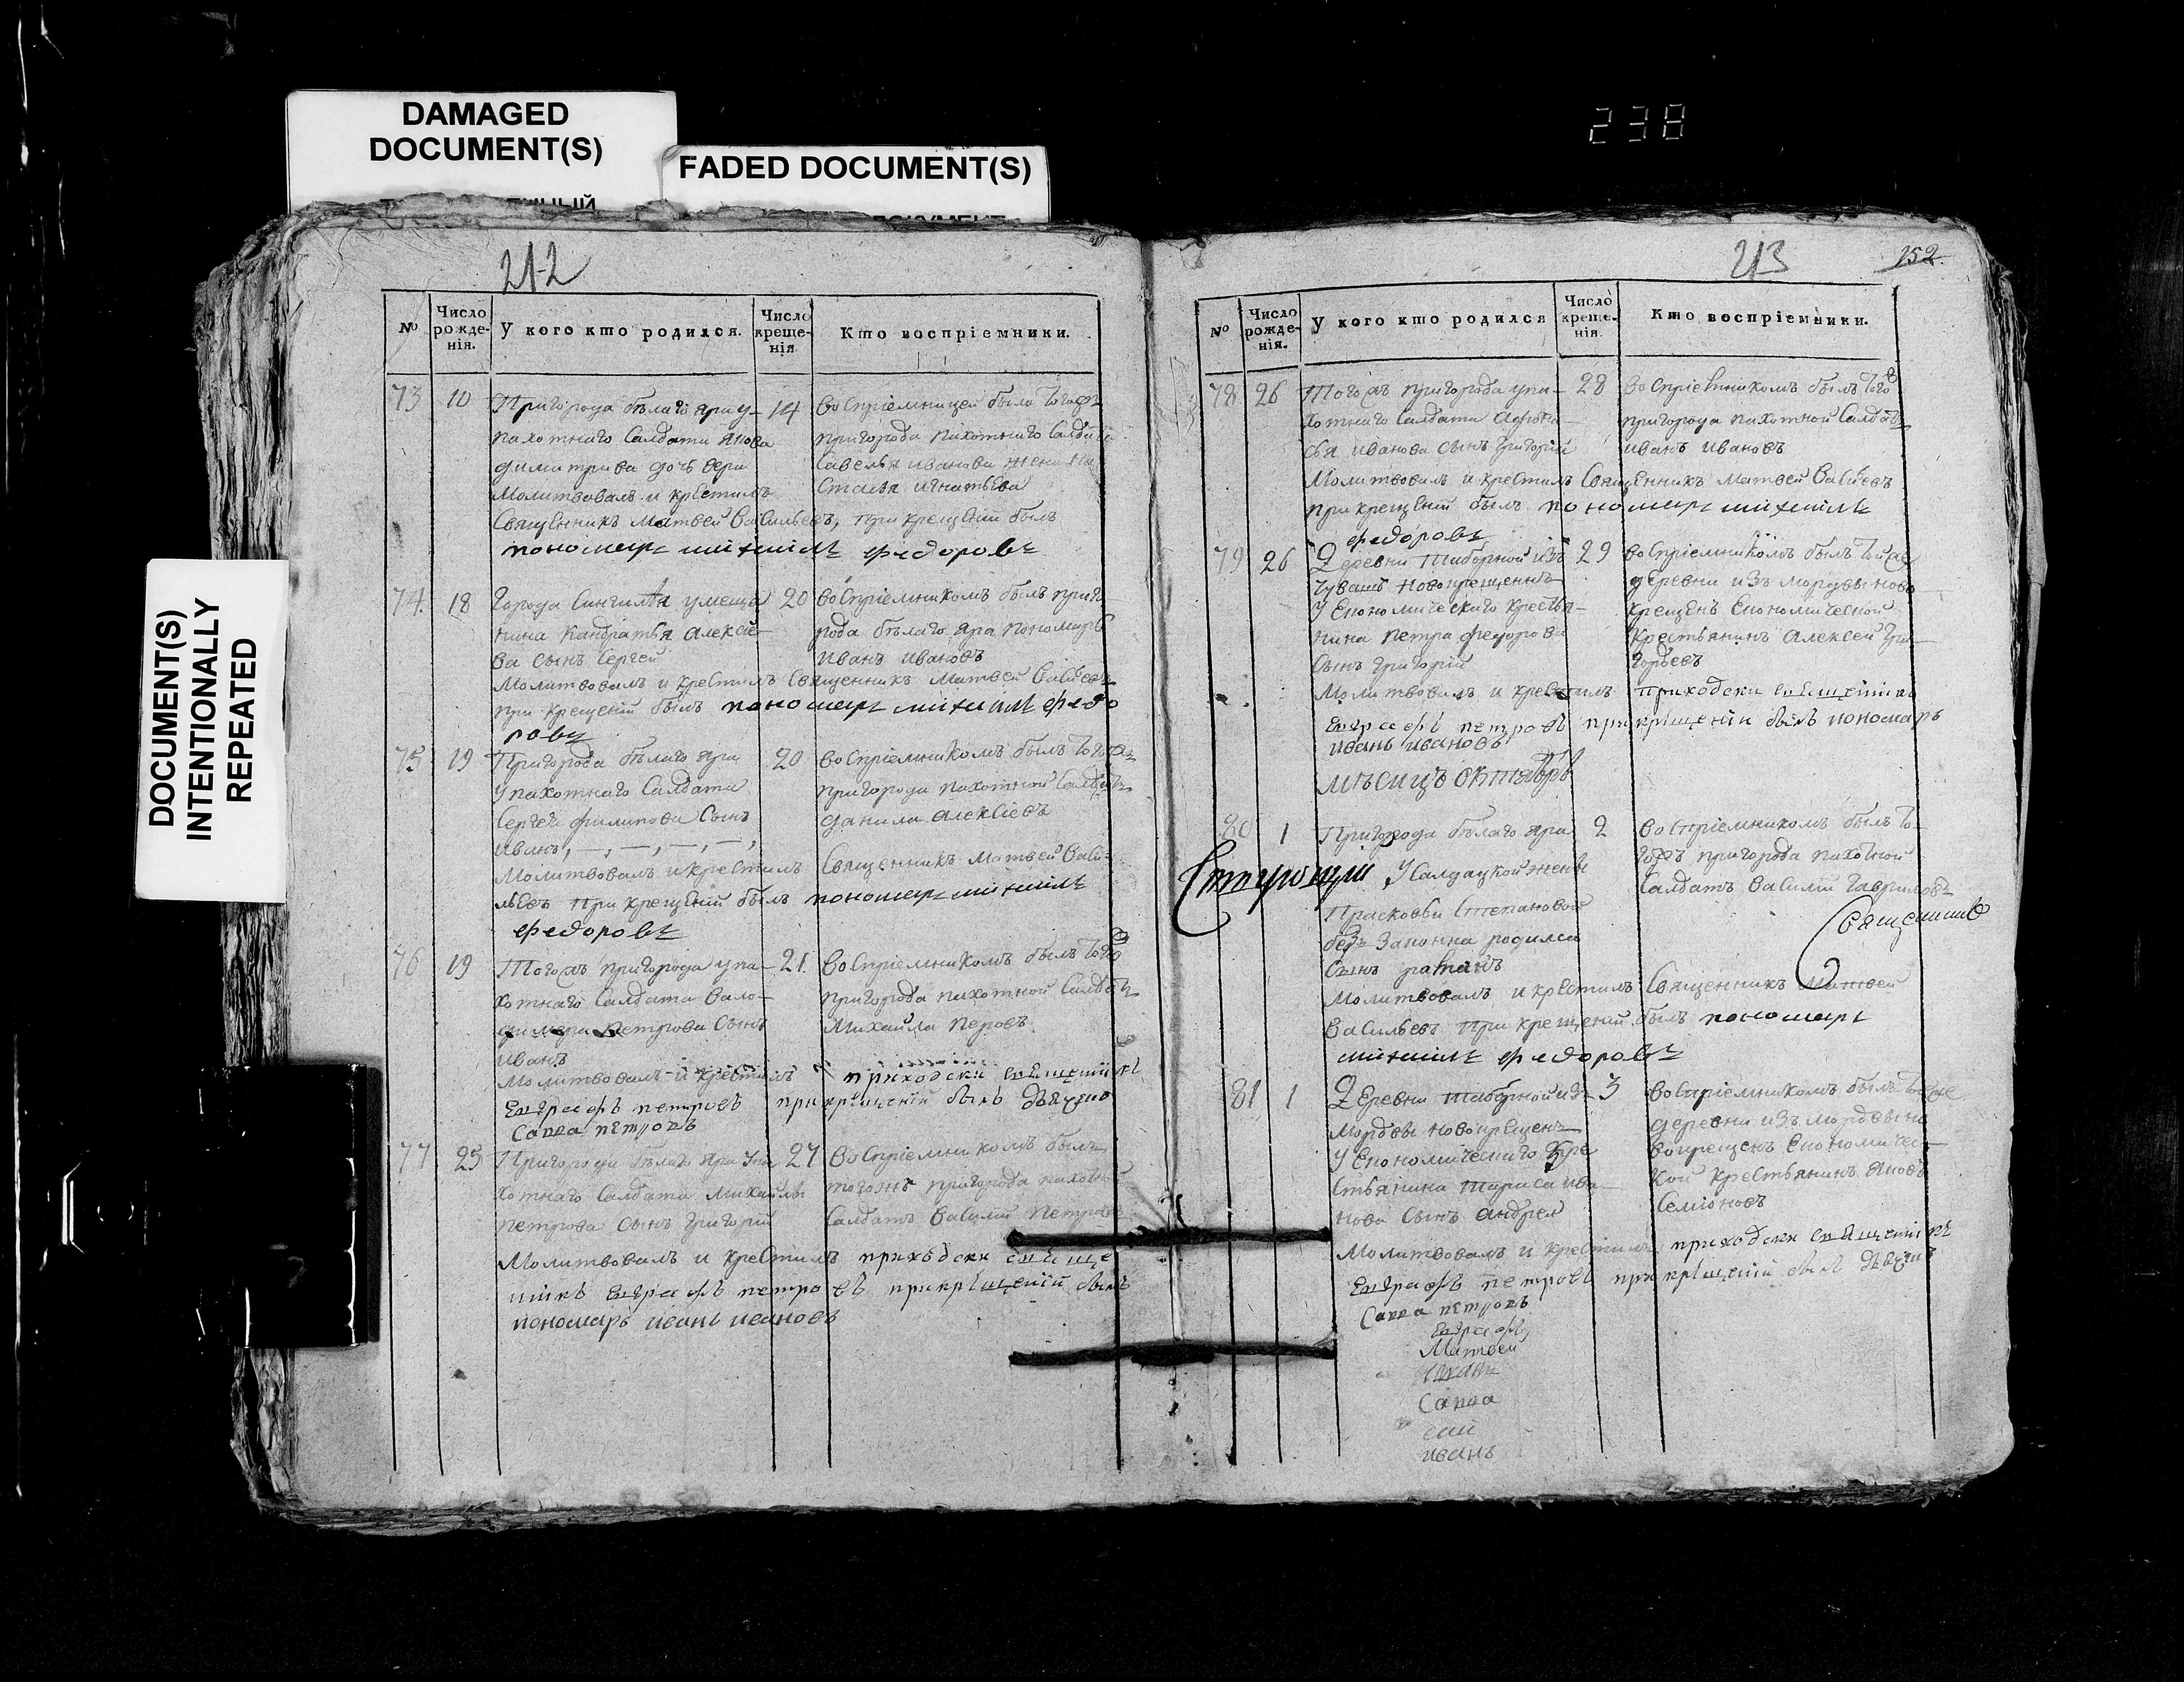 DAMAGED
DOCUMENT(S)
FADED DOCUMENT(S)
238
DOCUMENT(S)
INTENTIONALLY
REPEATED
212
№
Число рожденія.
У кого кто родился.
Число крещенія
Кто воспріемники.
73 10 14
Пригорода белаго яра у
пахотнаго Салдата Якова
димитрива дочь вера
Молитвовалъ и крестилъ
Священникъ Матвей Васильевъ, при крещеніи былъ
пономарь михаилъ федоровъ
воспріемницей была тогожъ
пригорода пахотнаго Салдата
Савелья иванова жена
игнатьева
74. 18 20
города Сингилѣя у меща
нина Кандратья Алексѣе
ва сынъ Сергей
Молитвовалъ и крестилъ Священникъ Матвей Васильевъ
при крещеніи былъ пономарь михаилъ федо
ровъ
воспріемникомъ былъ приго
рода бѣлаго яра пономарь
иванъ ивановъ
75 19 20
Пригорода бѣлаго яра
у пахотнаго Салдата
Сергея филипова Сынъ
иванъ, —, —, —, —,
Молитвовалъ и крестилъ Священникъ Матвей Васи
льевъ при крещеніи былъ пономарь михаилъ
федоровъ
воспріемникомъ былъ тогожъ
пригорода пахотной Салдатъ
данила алексіевъ
76 19 21.
Тогожъ пригорода у па
хотнаго Салдата Вало
димера Петрова Сынъ
иванъ
Молитвовалъ и крестилъ приходски священникъ
Евграфъ петровъ при крещеніи былъ дьячекъ
Савва петровъ
воспріемникомъ былъ того
пригорода пахотной Салдатъ
Михайла Перовъ
77 25 27
Пригорода бѣлаго яра у па
хотнаго Салдата Михайлы
петрова сынъ григорій
Молитвовалъ и крестилъ приходски свяще
никъ Евграфъ петровъ при крещеній былъ
пономарь иванъ ивановъ
Воспріемникомъ былъ
тогожъ пригорода пахотной
Салдатъ Василій Петровъ
213
152.
№
Число рожденія.
У кого кто родился
Число крещенія
Кто воспріемники.
78 26 28
Тогожъ пригорода у па
хотнаго Салдата Афона
сья иванова сынъ григорій
Молитвовалъ и крестилъ Священникъ Матвей Васильевъ
при крещеніи былъ пономарь михаилъ
федоровъ
воспріемникомъ былъ того
пригорода пахотной Салдатъ
иванъ ивановъ
79 26 29
Деревни Таборной изъ
чувашъ новокрещенъ
у Економическаго крестья
нина петра федорова
Сынъ григорій
Молитвовалъ и крестилъ приходски священникъ
Евграфъ петровъ при крещеніи былъ пономарь
иванъ ивановъ
воспріемникомъ былъ тойже
деревни изъ мордвы ново
крещенъ Економической
Крестьянинъ Алексей Гри
горьевъ
мѣсицъ октябрь
80 1 2
Пригорода бѣлаго яра
У салдацкой жены
Прасковьи Степановой
безъ Законна родился
Сынъ
Молитвовалъ и крестилъ Священникъ Матвей
Васильевъ при крещеній былъ пономарь
михаилъ федоровъ
воспріемникомъ былъ то
гожъ пригорода пахотной
Салдатъ Василій Гавриловъ
Священникъ
81 1 3
Деревни Таборной изъ
Мордвы новокрещенъ
у Економическаго Кре
стьянина Тариса ива
нова Сынъ андрей
Молитвовалъ и крестилъ приходски священникъ
Евграфъ петровъ при крещеній былъ дьячекъ
Савва петровъ
воспріемникомъ былъ тойже
деревни изъ мордвы но
вокрещенъ Економичес
кой крестьянинъ Яковъ
Семіоновъ
Евграфъ
Матвей
Савва
иванъ